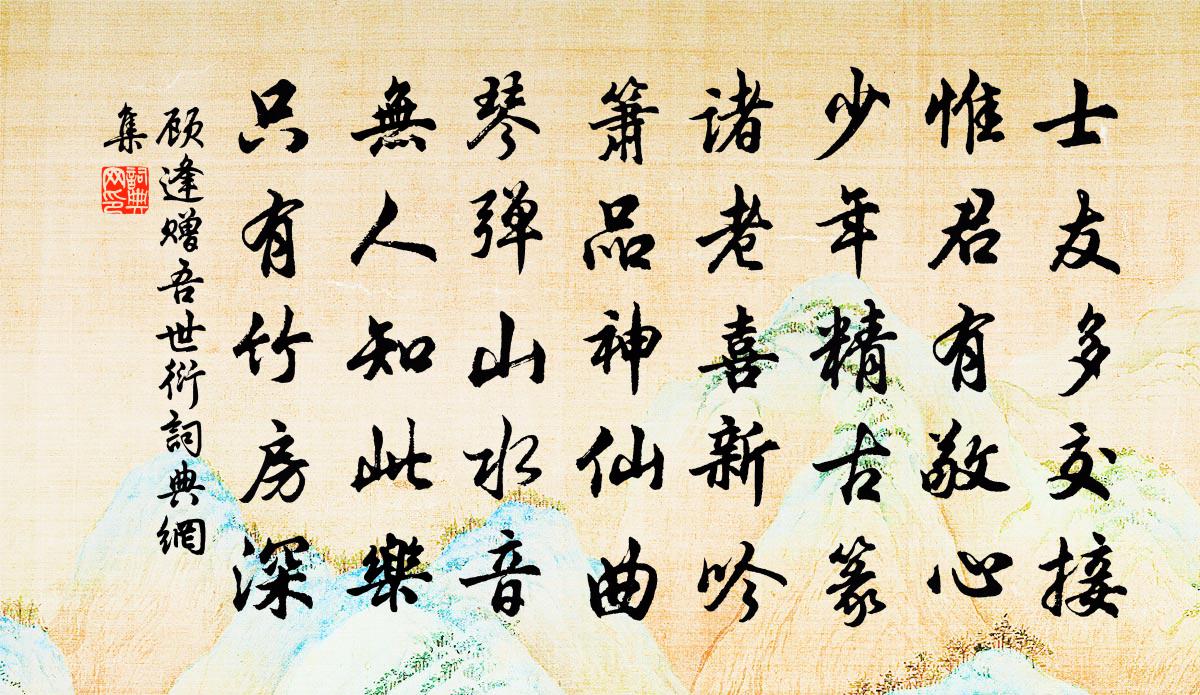 士友多交接
惟君有敬心
少年精古篆
诸老喜新吟
箫品神仙曲
琴弹山水音
無人知此樂
只有竹房深
顾逢赠吾世衍詞典網
集
詞典
网印